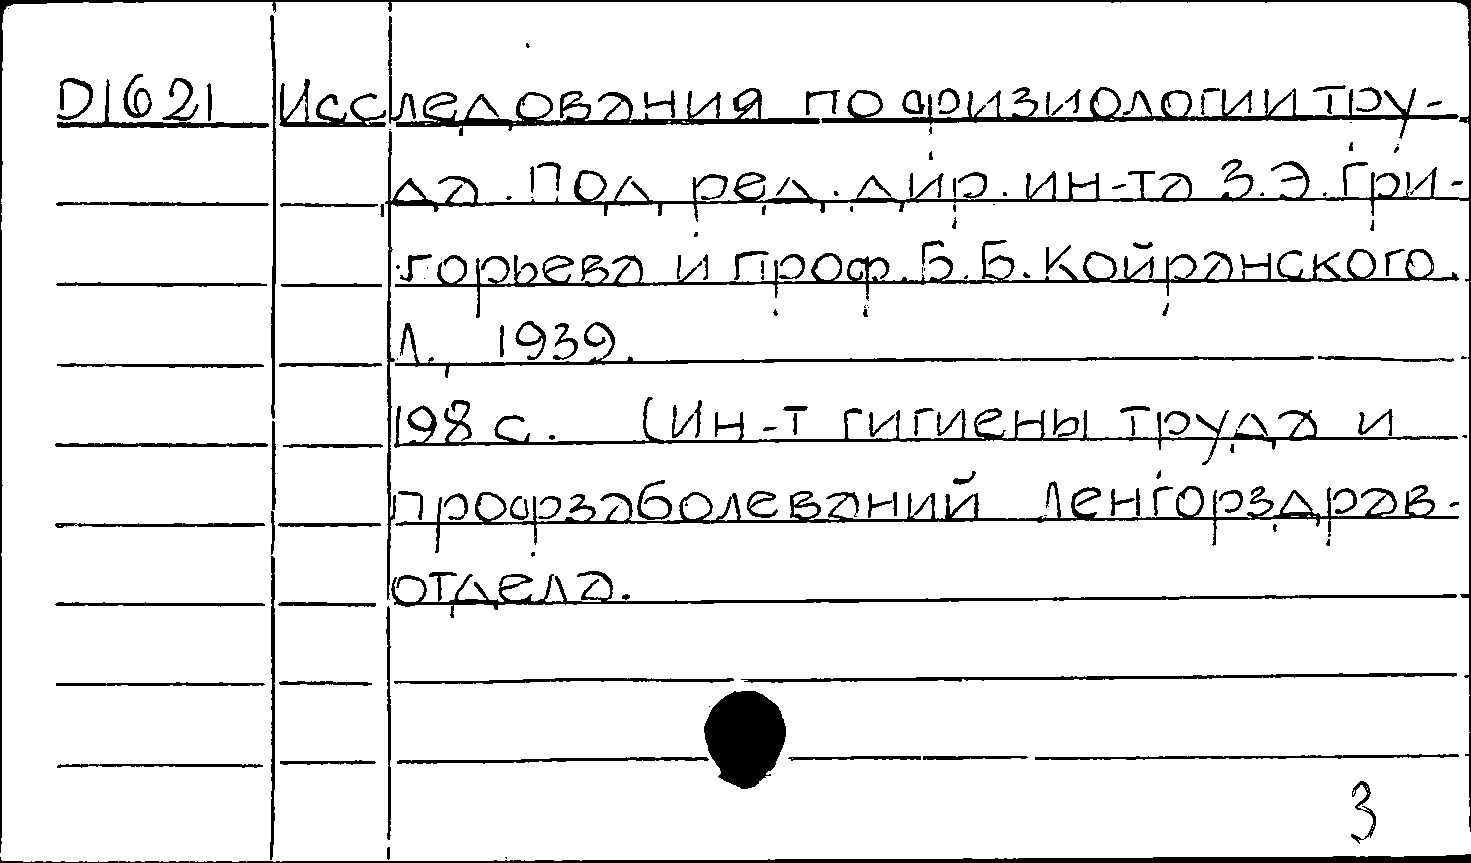 D1621 Исследования по физиологии тру-
да. Под ред. дир. ин-та З.Э. Гри-
горьева и проф. Б.Б. Койранского.
Л., 1939.
198 с. (Ин-т гигиены труда и
профзаболеваний Ленгорздрав-
отдела.
3